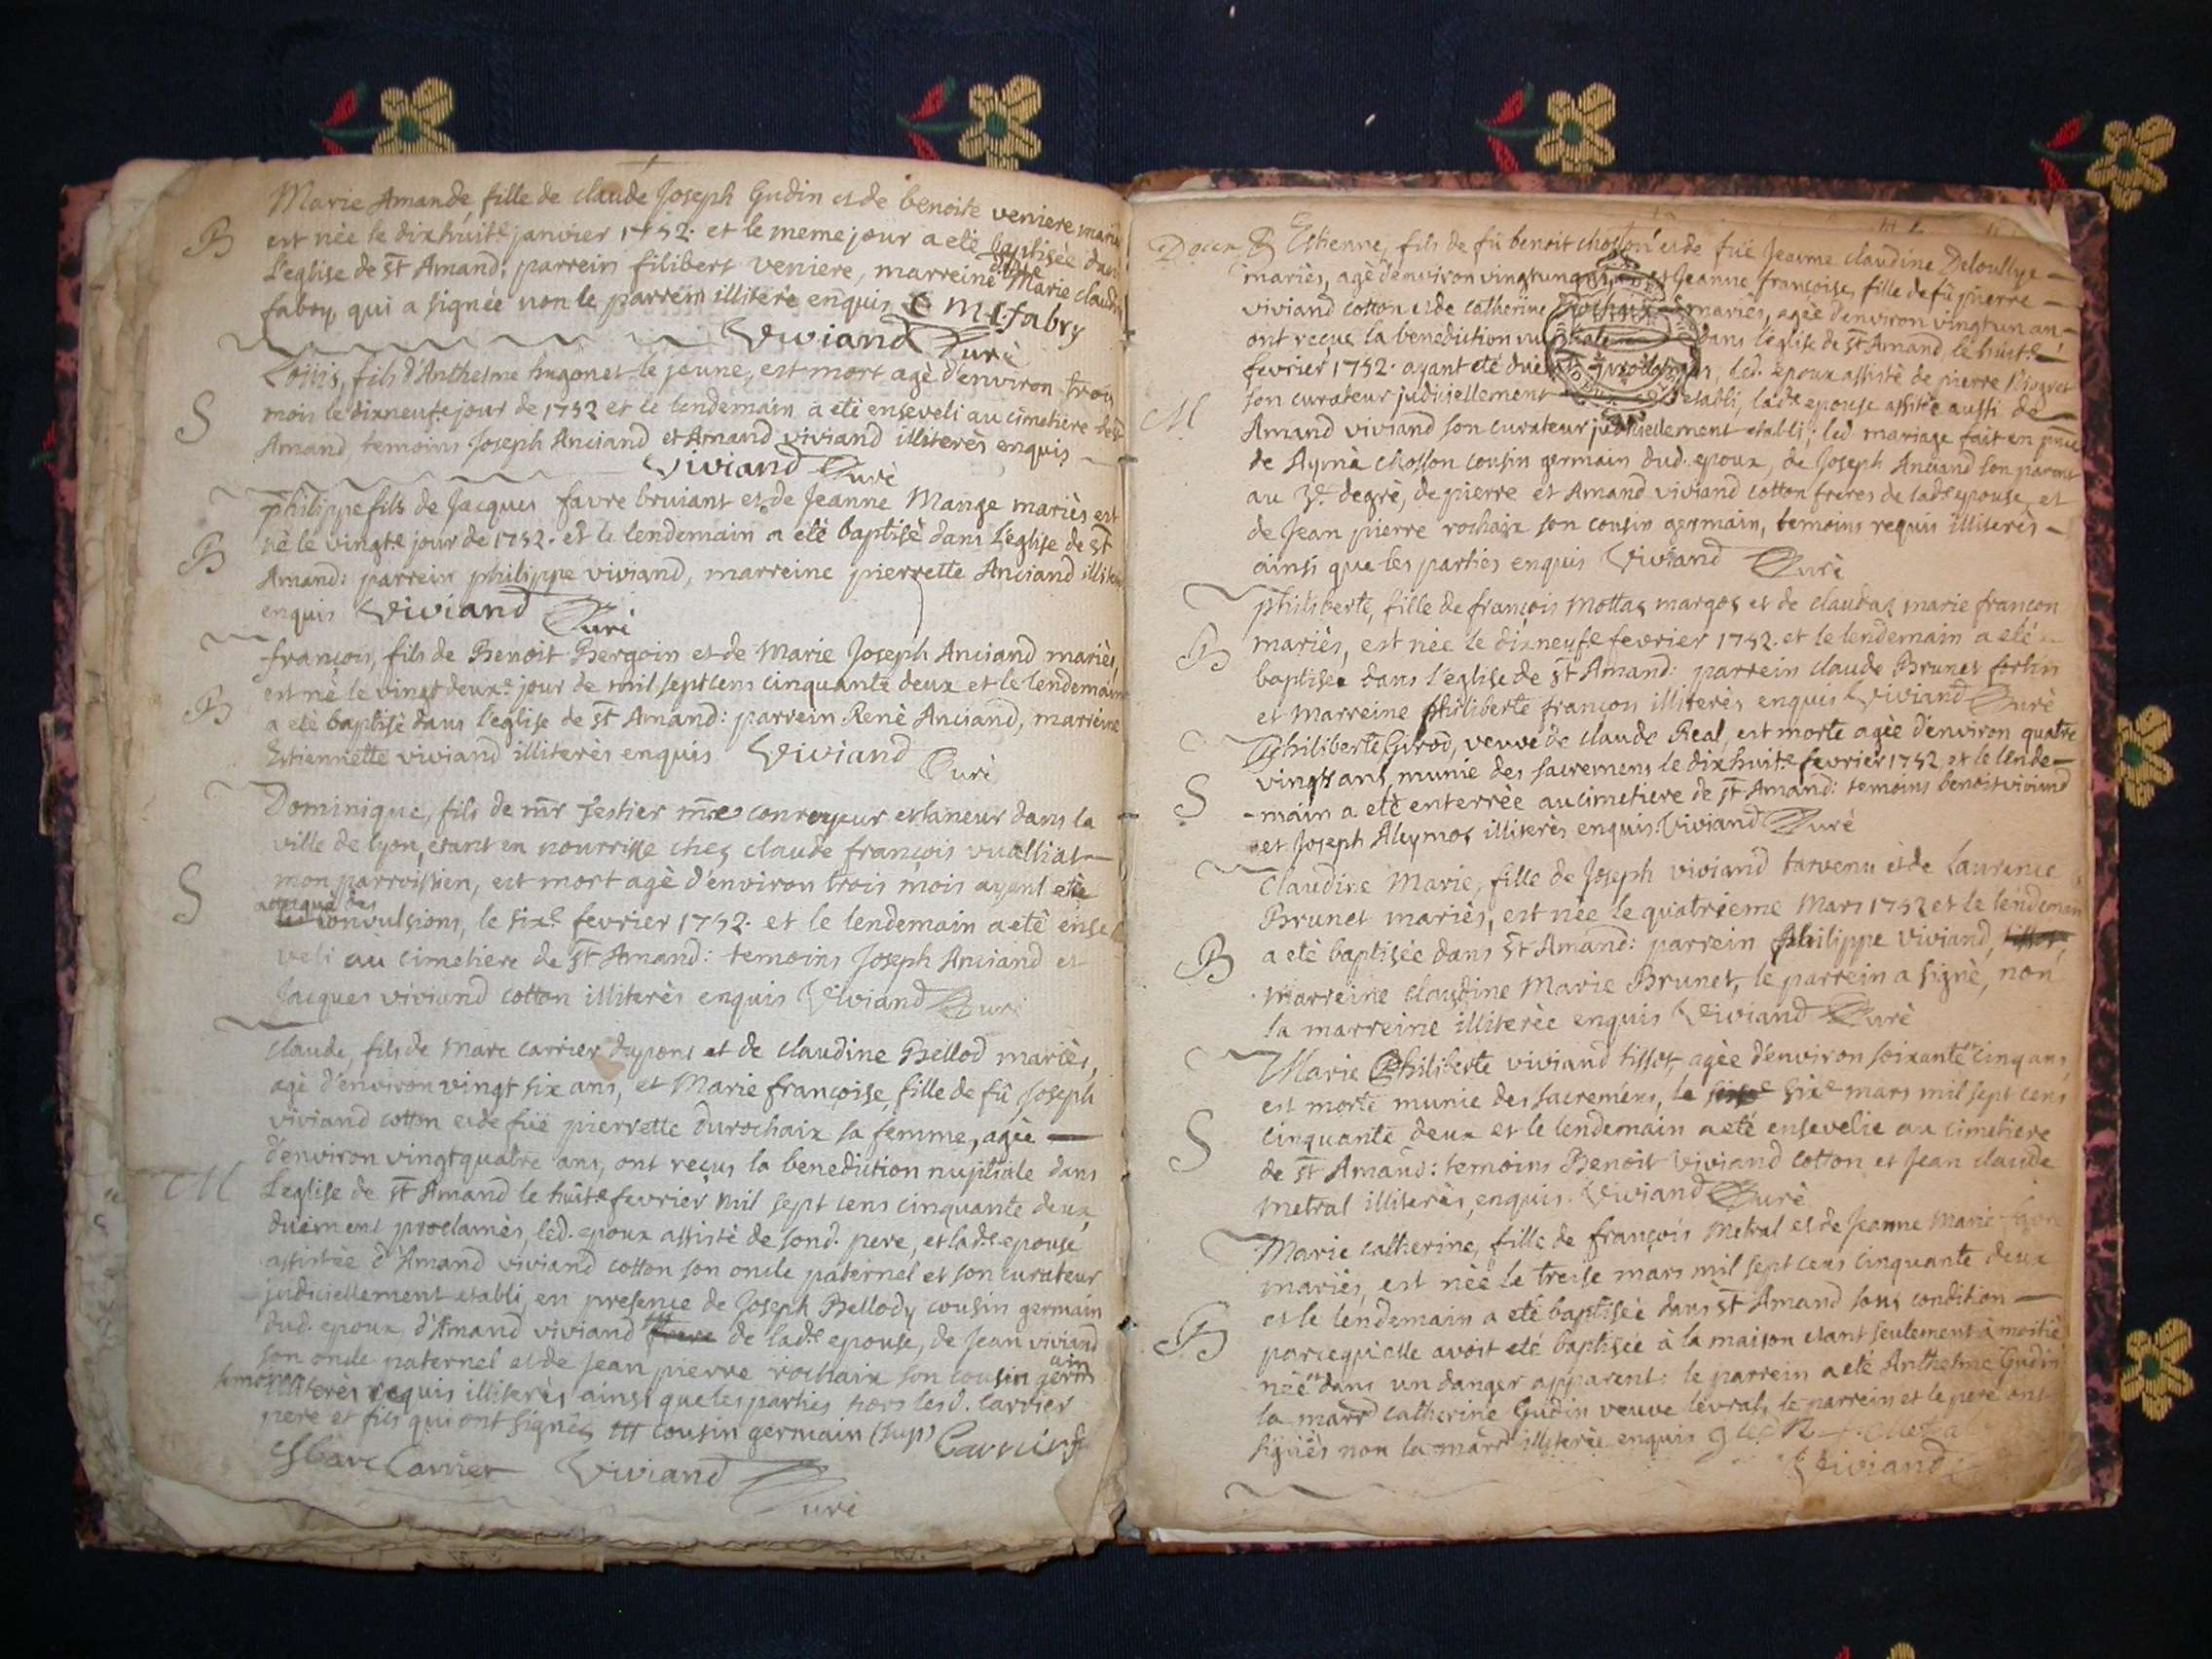 Marie Amande, fille de claude Joseph Gudin et de benoite veniere mariés
B
est née le dixhuit.e janvier 1752. et le meme jour a eté baptisée dans
L'eglise de St Amand: parrein filibert veniere, marreine d.lle Marie claudine
fabry, qui a signée non le parrein illiteré enquis M C fabry
Viviand Curé
Loüis, fils d'Anthelme hugonet le jeune, est mort agé d'environ trois
S
mois le dixneuf.e jour de 1752 et le lendemain a eté enseveli au cimetiere de St
Amand, temoins Joseph Anciand et Amand viviand illiterés enquis
Viviand Curé
philippe fils de Jacques favre bruiant et de Jeanne Mange mariés est
B
né le vingt.e jour de 1752. et le lendemain a eté baptisé dans L'eglise de St
Amand: parrein philippe viviand, marreine pierrette Anciand illiterés
enquis Viviand Curé
françois, fils de Benoit Bergoin et de Marie Joseph Anciand mariés,
est né le vingt deux.e jour de mil sept cens cinquante deux et le lendemain
B
a eté baptisé dans l'eglise de St Amand: parrein René Anciand, marreine
Estiennette viviand illiterés enquis Viviand Curé
Dominique, fils de mr Festier me conroyeur et taneur dans la
ville de lyon, etant en nourrisse chez claude françois vualliat
S
mon parroissien, est mort agé d'environ trois mois ayant eté
attaqué des
convulsions, le six.e fevrier 1752. et le lendemain a eté ense
veli au cimetiere de St Amand: temoins Joseph Anciand et
Jacques viviand cotton illiterés enquis Viviand Curé
Claude, fils de Marc carrier dupont et de claudine Bellod mariés,
agé d'environ vingt six ans, et Marie françoise, fille de fû Joseph
viviand cotton et de füe pierrette durochaix sa femme, agée
d'environ vingtquatre ans, ont reçus la benediction nuptiale dans
M
L'eglise de St Amand le huit.e fevrier mil sept cens cinquante deux,
düement proclamés, led. epoux assisté de sond. pere, et lad.e epouse
assistée d'Amand viviand cotton son oncle paternel et son curateur
judiciellement etabli, en presence de Joseph Bellody cousin germain
dud. epoux, d'Amand viviand ttt de lad.e epouse, de Jean viviand
son oncle paternel et de Jean pierre rochaix son cousin germain
temoins requis illiterés ainsi que les parties hors lesd. Carrier
pere et fils qui ont signés ttt cousin germain (sup) Carrier f
Marc Carrier Viviand Curé
Estienne, fils de fû benoit chosson et de füe Jeanne claudine Deloullye
mariés, agé d'environ vingtun ans et Jeanne françoise, fille de fû pierre
viviand cotton et de catherine rochaix mariés, agée d'environ vingtun an
ont reçue la benediction nuptiale dans l'eglise de St Amand, le huit.e
fevrier 1752. ayant eté düement proclamés, led. epoux assisté de pierre
son curateur judiciellement etabli, lad.e epouse assistée aussi de
M
Amand viviand son curateur judiciellement etabli; led. mariage fait en pnce
de Aymé chosson cousin germain dud. epoux, de Joseph Anciand son parent
au 3.e degré, de pierre et Amand viviand cotton freres de lad.e epouse, et
de Jean pierre rochaix son cousin germain, temoins requis illiterés
ainsi que les parties enquis Viviand Curé
philiberte, fille de françois mottaz margoz et de claudaz marie françon
mariés, est née le dixneuf.e fevrier 1752. et le lendemain a eté
B
baptisée dans l'eglise de St Amand: parrein claude Brunet fortin
et Marreine philiberte françon illiterés enquis Viviand Curé
Philiberte Girod, veuve de claude Real, est morte agée d'environ quatre
vingts ans, munie des sacremens le dixhuit.e fevrier 1752 et le lende-
S
-main a eté enterrée au cimetiere de St Amand: temoins benoit viviand
et Joseph Aleymoz illiterés enquis. Viviand Curé
Claudine Marie, fille de Joseph viviand tarvenu et de Laurence
Brunet mariés, est née le quatrieme Mars 1752 et le lendemain
B
a eté baptisée dans St Amand: parrein Philippe Viviand,
marreine claudine Marie Brunet, le parrein a signé, non
la marreine illiterée enquis Viviand Curé
Marie Philiberte viviand tissot, agée d'environ soixante cinq ans,
est morte munie des sacremens, le six.e mars mil sept cens
S
cinquante deux et le lendemain a eté ensevelie au cimetiere
de St Amand: temoins Benoit Viviand cotton et Jean claude
metral illiterés, enquis. Viviand Curé
Marie catherine, fille de françois Metral et de Jeanne Marie
mariés, est née le treise mars mil sept cens cinquante deux
et le lendemain a eté baptisée dans St Amand sous condition
B
parcequ'elle avoit eté baptisée à la maison etant seulement à moitié
née et dans un danger apparent: le parrein a eté Anthelme Gudin
la marr.e catherine Gudin veuve levrat, le parrein et le pere ont
signés non la marr.e illiterée enquis
Viviand